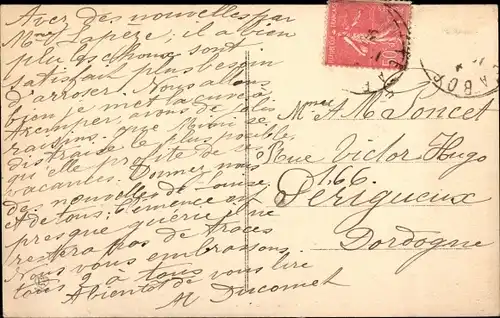 Avez des nouvelles par
Mme Lapèze; il a bien
plu les choux sont
satisfait plus besoin
d'arroser. Nous allons
bien je met la cure à
tremper, avons de jolis
raisins. que Mimi se
distraise le plus possible,
qu'elle profite de ses
vacantes. Donnez nous
des nouvelles de Louise
et de tous; Clémence est
presque guérie il ne
restera pas de traces
Nous vous embrassons
tous 2 à tous
A bientot de vous lire
M Ducomet
Mme A Mr Poncet
Rue Victor Hugo
166.
Périgueux
Dordogne
50